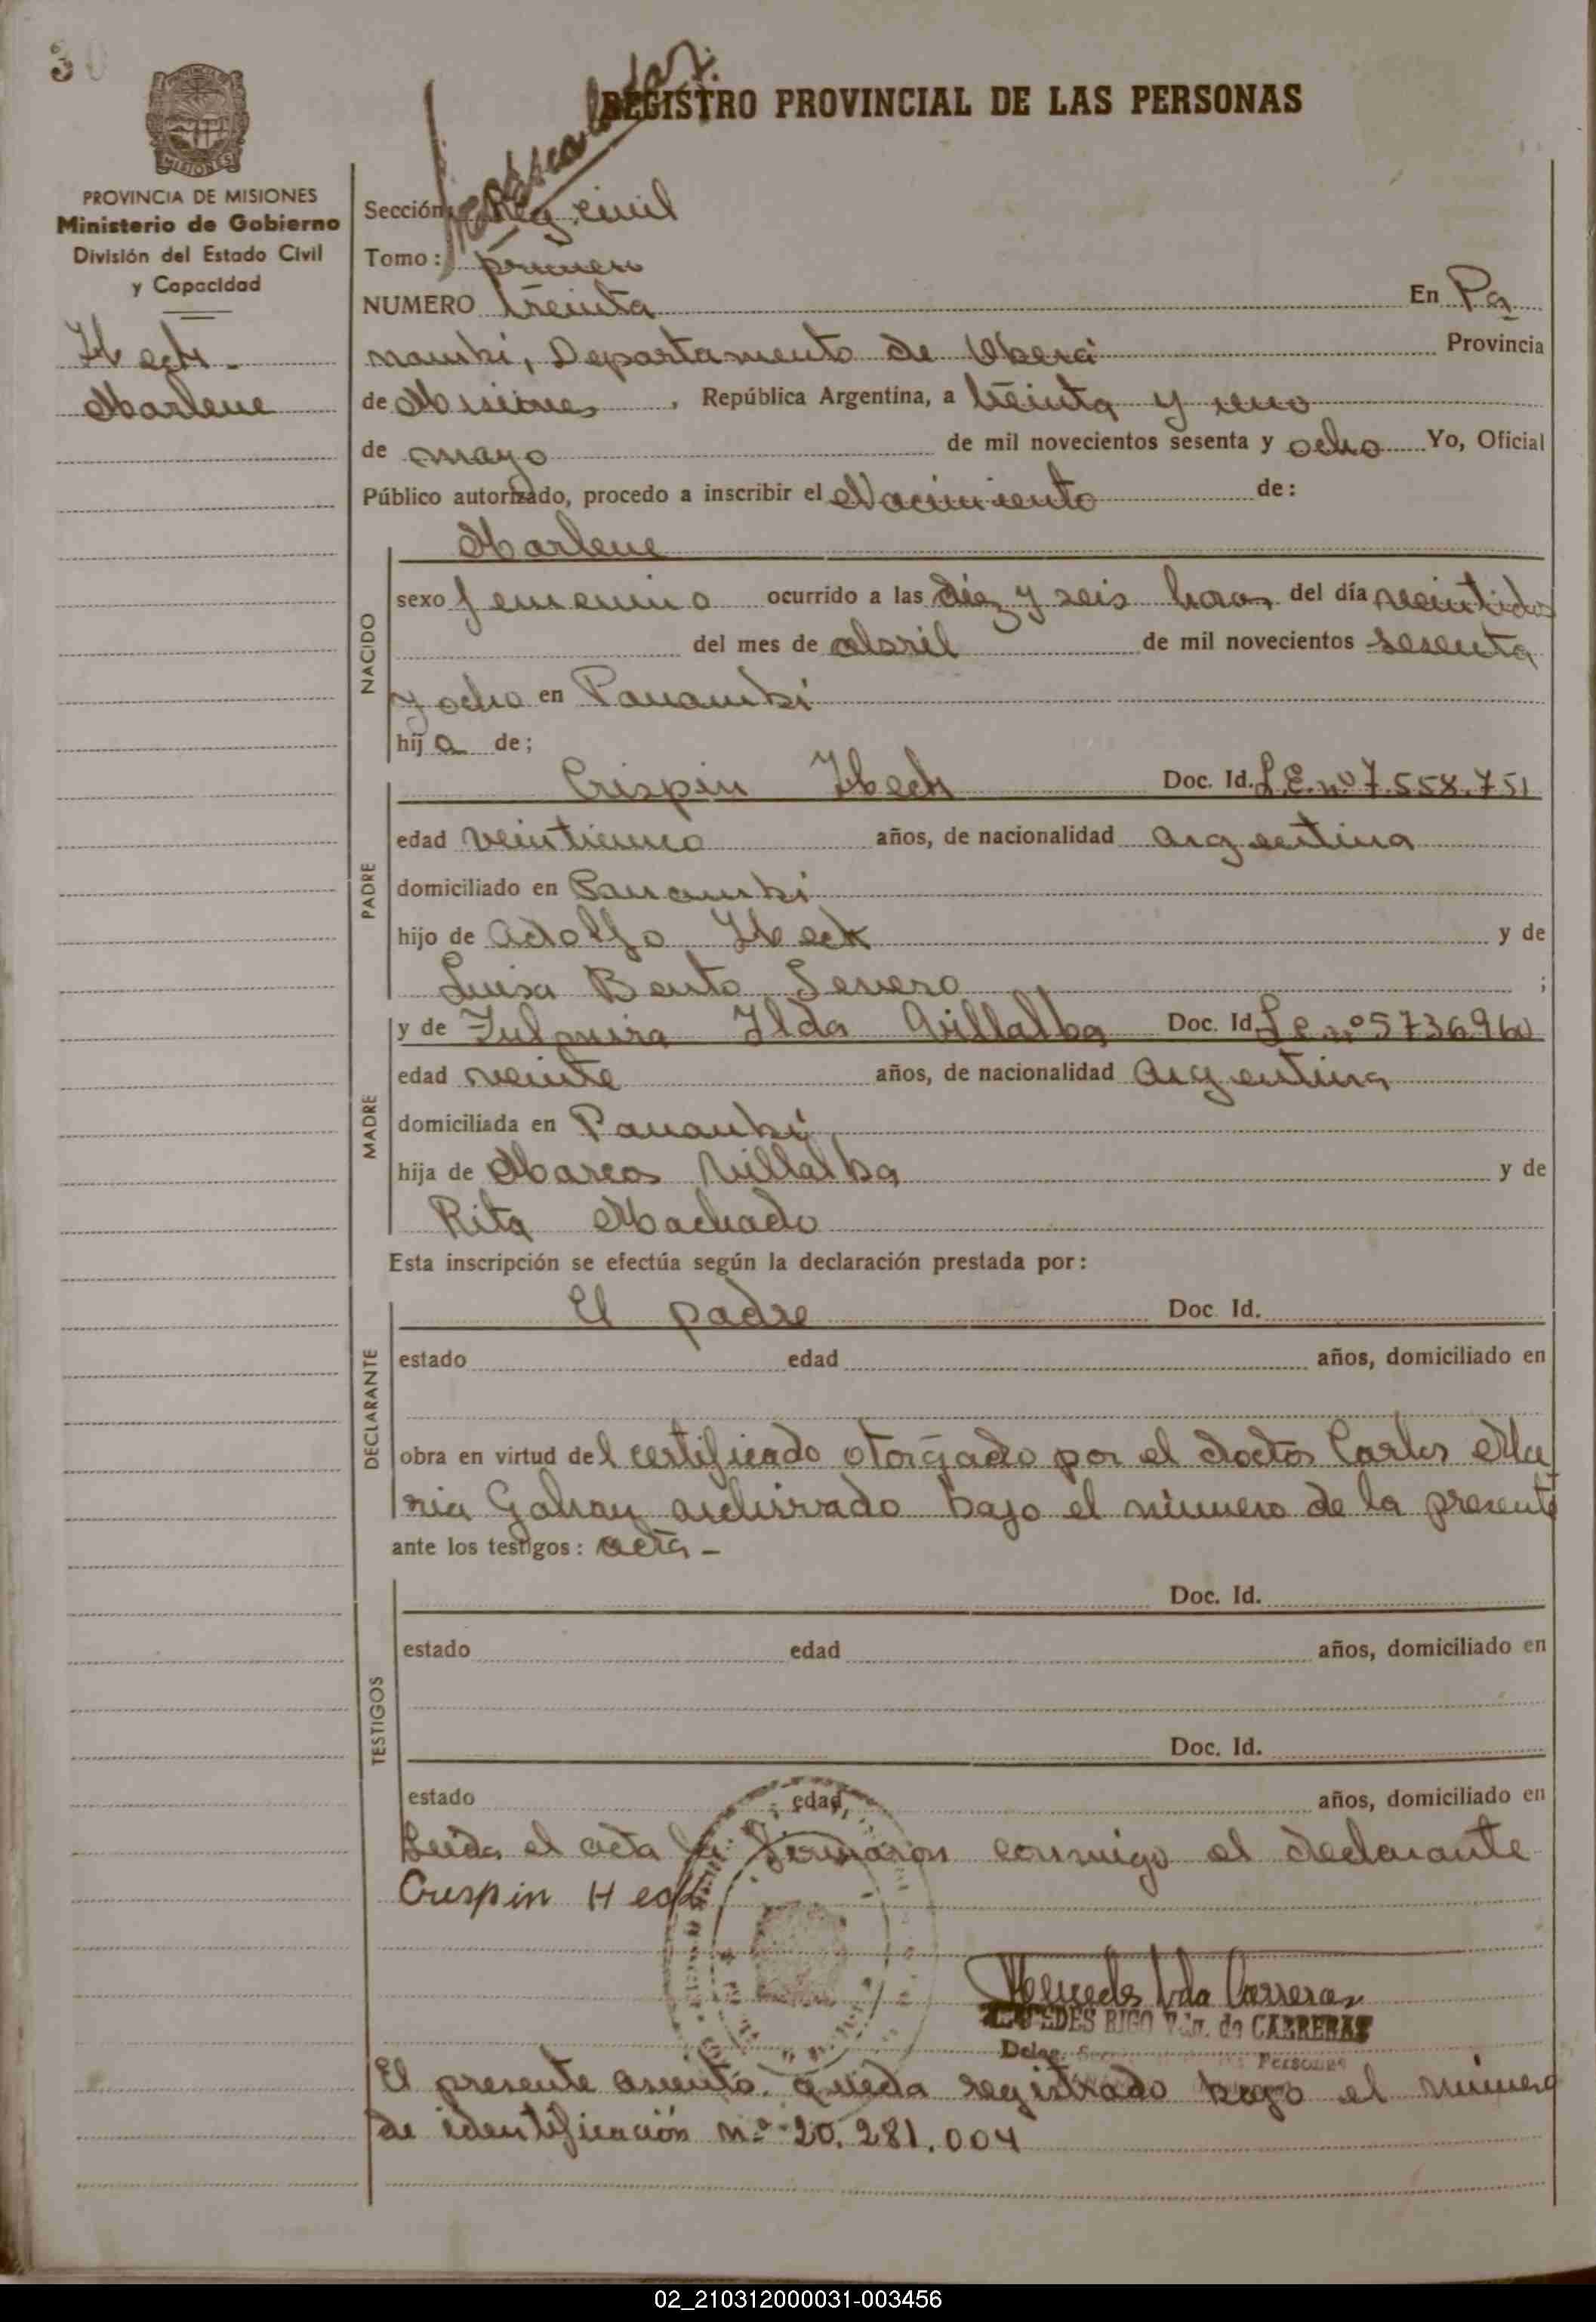 30
REGISTRO PROVINCIAL DE LAS PERSONAS
PROVINCIA DE MISIONES
Ministerio de Gobierno
División del Estado Civil
y Capacidad
Hech.
Marlene
Sección: Reg. civil
Tomo: primero
NUMERO treinta En Pa
nambi, Departamento de Oberá Provincia
de Misiones, República Argentina, a treinta y uno
de mayo de mil novecientos sesenta y ocho Yo, Oficial
Público autorizado, procedo a inscribir el Nacimiento de:
Marlene
NACIDO
sexo femenino ocurrido a las diez y seis horas del día veintidos
del mes de abril de mil novecientos sesenta
y ocho en Panambi
hija de;
PADRE
Crispin Hech Doc. Id. L.E. nº 7.558.751
edad veintiuno años, de nacionalidad argentina
domiciliado en Panambi
hijo de Adolfo Heck y de
Luisa Bento Severo ;
MADRE
y de Ilda Villalba Doc. Id. L.C. nº 5736960
edad veinte años, de nacionalidad argentina
domiciliada en Panambi
hija de Marcos Villalba y de
Rita Machado
Esta inscripción se efectúa según la declaración prestada por:
DECLARANTE
El padre Doc. Id.
estado edad años, domiciliado en
obra en virtud del certificado otorgado por el doctor Carlos Ma
ria archivado bajo el número de la presente
ante los testigos: acta -
TESTIGOS
Doc. Id.
estado edad años, domiciliado en
Doc. Id.
estado edad años, domiciliado en
Leida el acta la firmaron conmigo el declarante
Crispin Hech
Mercedes Vda Carreras
EDES RIGO Vda. de CARRERAS
Deleg. Personas
El presente asiento queda registrado bajo el número
de identificación n.º 20.281.004
02_210312000031-003456